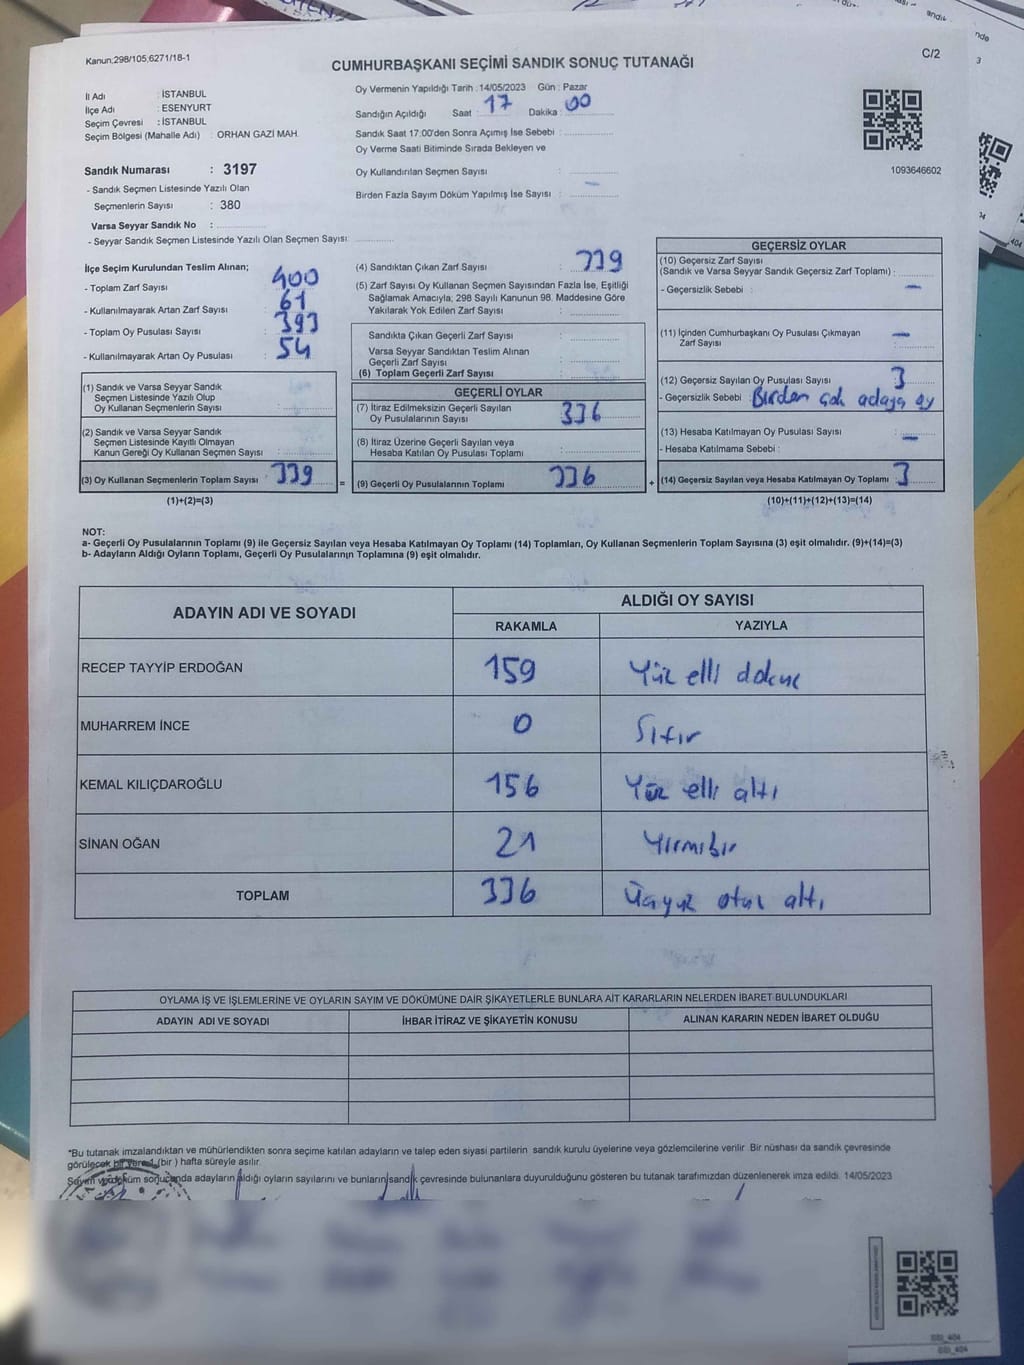 Kanun;298/105,6271/18-1
CUMHURBAŞKANI SEÇİMİ SANDIK SONUÇ TUTANAĞI
C/2
İl Adı : İSTANBUL
İlçe Adı : ESENYURT
Seçim Çevresi : İSTANBUL
Seçim Bölgesi (Mahalle Adı) : ORHAN GAZİ MAH.
Oy Vermenin Yapıldığı Tarih : 14/05/2023 Gün : Pazar
Sandığın Açıldığı Saat : 17 Dakika : 00
Sandık Saat 17:00'den Sonra Açımış İse Sebebi :
Oy Verme Saati Bitiminde Sırada Bekleyen ve
Oy Kullandırılan Seçmen Sayısı :
Birden Fazla Sayım Döküm Yapılmış İse Sayısı : -
1093646602
Sandık Numarası : 3197
- Sandık Seçmen Listesinde Yazılı Olan
Seçmenlerin Sayısı : 380
Varsa Seyyar Sandık No :
- Seyyar Sandık Seçmen Listesinde Yazılı Olan Seçmen Sayısı:
İlçe Seçim Kurulundan Teslim Alınan;
- Toplam Zarf Sayısı : 400
- Kullanılmayarak Artan Zarf Sayısı : 61
- Toplam Oy Pusulası Sayısı : 393
- Kullanılmayarak Artan Oy Pusulası : 54
(1) Sandık ve Varsa Seyyar Sandık
Seçmen Listesinde Yazılı Olup
Oy Kullanan Seçmenlerin Sayısı :
(2) Sandık ve Varsa Seyyar Sandık
Seçmen Listesinde Kayıtlı Olmayan
Kanun Gereği Oy Kullanan Seçmen Sayısı :
(3) Oy Kullanan Seçmenlerin Toplam Sayısı : 339
(1)+(2)=(3)
=
(4) Sandıktan Çıkan Zarf Sayısı : 339
(5) Zarf Sayısı Oy Kullanan Seçmen Sayısından Fazla İse, Eşitliği
Sağlamak Amacıyla, 298 Sayılı Kanunun 98. Maddesine Göre
Yakılarak Yok Edilen Zarf Sayısı :
Sandıkta Çıkan Geçerli Zarf Sayısı :
Varsa Seyyar Sandıktan Teslim Alınan
Geçerli Zarf Sayısı :
(6) Toplam Geçerli Zarf Sayısı :
GEÇERLİ OYLAR
(7) İtiraz Edilmeksizin Geçerli Sayılan
Oy Pusulalarının Sayısı : 336
(8) İtiraz Üzerine Geçerli Sayılan veya
Hesaba Katılan Oy Pusulası Toplamı :
(9) Geçerli Oy Pusulalarının Toplamı : 336
+
GEÇERSİZ OYLAR
(10) Geçersiz Zarf Sayısı
(Sandık ve Varsa Seyyar Sandık Geçersiz Zarf Toplamı) :
- Geçersizlik Sebebi : -
(11) İçinden Cumhurbaşkanı Oy Pusulası Çıkmayan
Zarf Sayısı : -
(12) Geçersiz Sayılan Oy Pusulası Sayısı : 3
- Geçersizlik Sebebi : Birden çok adaya oy
(13) Hesaba Katılmayan Oy Pusulası Sayısı : -
- Hesaba Katılmama Sebebi :
(14) Geçersiz Sayılan veya Hesaba Katılmayan Oy Toplamı : 3
(10)+(11)+(12)+(13)=(14)
NOT:
a- Geçerli Oy Pusulalarının Toplamı (9) ile Geçersiz Sayılan veya Hesaba Katılmayan Oy Toplamı (14) Toplamları, Oy Kullanan Seçmenlerin Toplam Sayısına (3) eşit olmalıdır. (9)+(14)=(3)
b- Adayların Aldığı Oyların Toplamı, Geçerli Oy Pusulalarının Toplamına (9) eşit olmalıdır.
ADAYIN ADI VE SOYADI
ALDIĞI OY SAYISI
RAKAMLA YAZIYLA
RECEP TAYYİP ERDOĞAN 159 Yüz elli dokuz
MUHARREM İNCE 0 Sıfır
KEMAL KILIÇDAROĞLU 156 Yüz elli altı
SİNAN OĞAN 21 Yirmibir
TOPLAM 336 Üçyüz otuz altı
OYLAMA İŞ VE İŞLEMLERİNE VE OYLARIN SAYIM VE DÖKÜMÜNE DAİR ŞİKAYETLERLE BUNLARA AİT KARARLARIN NELERDEN İBARET BULUNDUKLARI
ADAYIN ADI VE SOYADI İHBAR İTİRAZ VE ŞİKAYETİN KONUSU ALINAN KARARIN NEDEN İBARET OLDUĞU
*Bu tutanak imzalandıktan ve mühürlendikten sonra seçime katılan adayların ve talep eden siyasi partilerin sandık kurulu üyelerine veya gözlemcilerine verilir Bir nüshası da sandık çevresinde
görülecek bir yere 1 (bir ) hafta süreyle asılır.
Sayım ve döküm sonucunda adayların aldığı oyların sayılarını ve bunların sandık çevresinde bulunanlara duyurulduğunu gösteren bu tutanak tarafımızdan düzenlenerek imza edildi. 14/05/2023